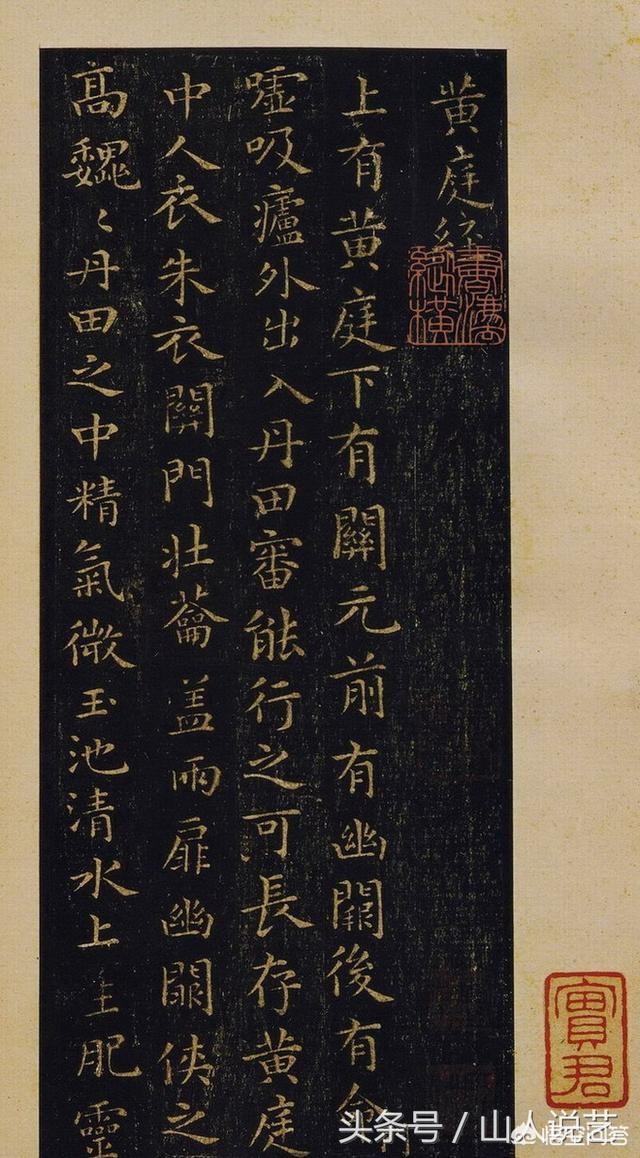 黄庭經
上有黄庭下有關元前有幽闕後有命
嘘吸廬外出入丹田審能行之可長存黄庭
中人衣朱衣關門壯蘥盖兩扉幽闕俠之
高魏〻丹田之中精氣微玉池清水上生肥靈
頭条号 / 山人说艺
悟空问答